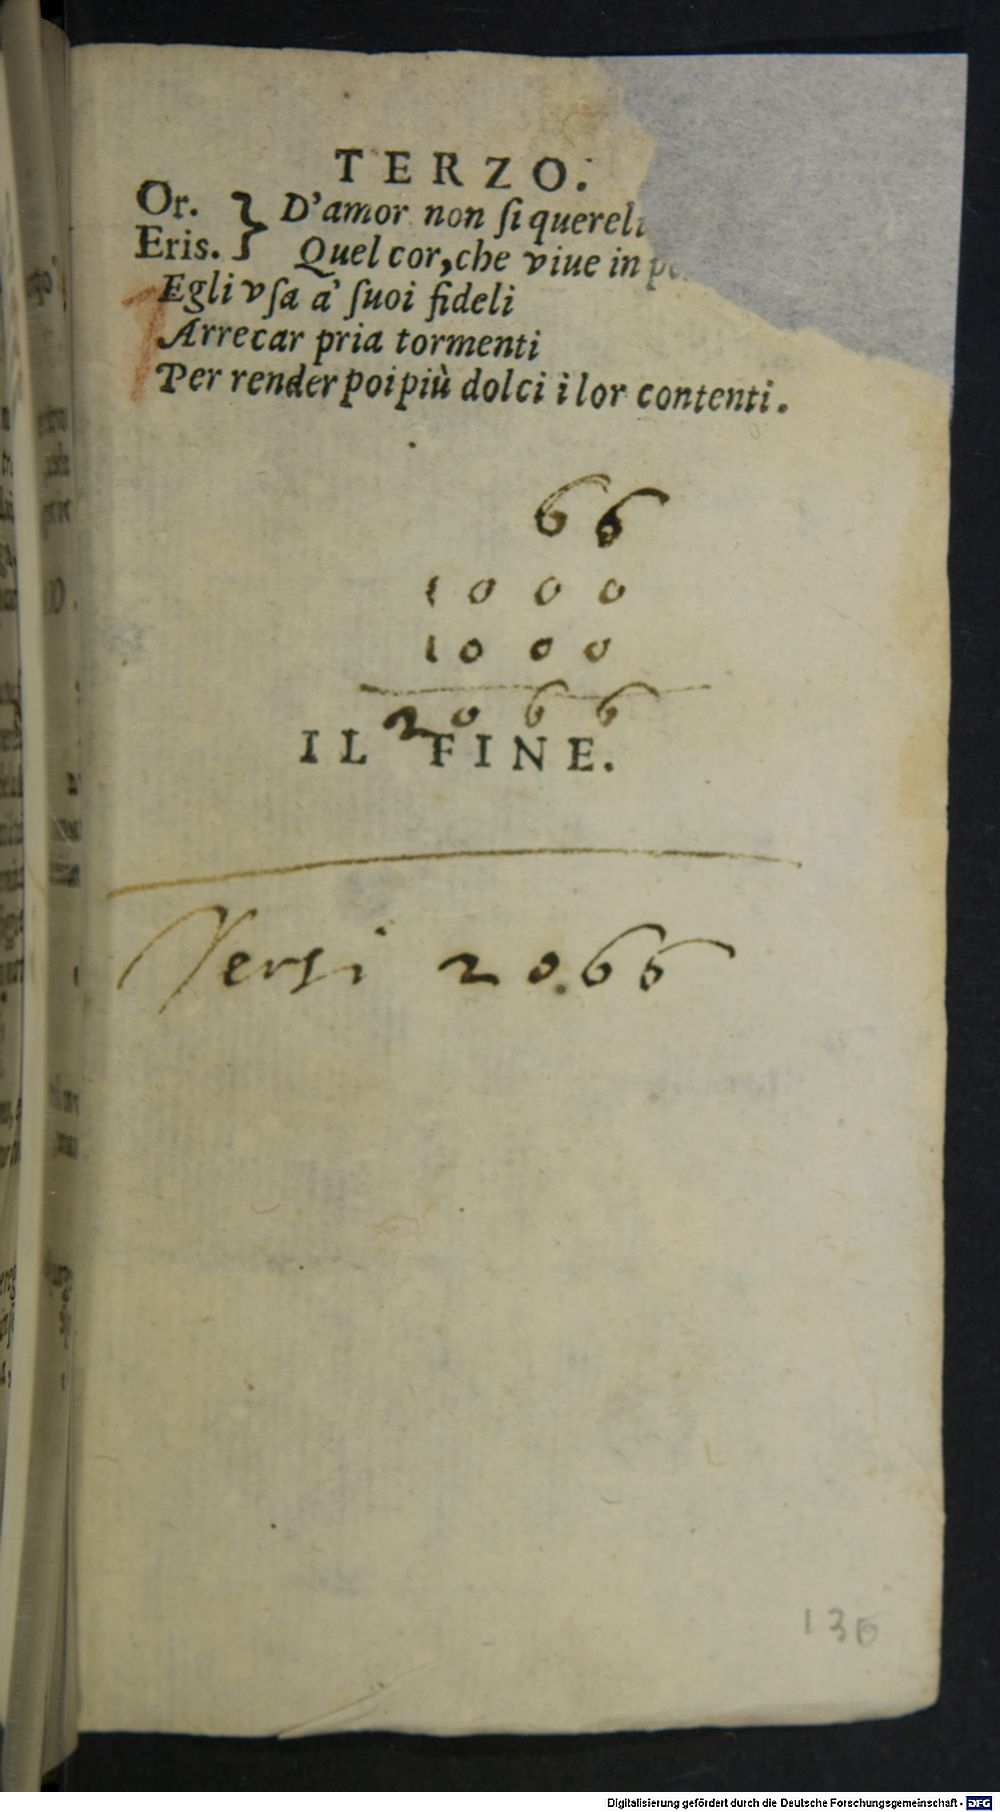 TERZO.
Or. } D'amor non ſi quereli
Eris. } Quel cor, che viue in
Egli vſa a' ſuoi fideli
Arrecar pria tormenti
Per render poi più dolci i lor contenti.
66
1000
1000
2066
IL FINE.
Versi 2066
136
Digitalisierung gefördert durch die Deutsche Forschungsgemeinschaft - DFG